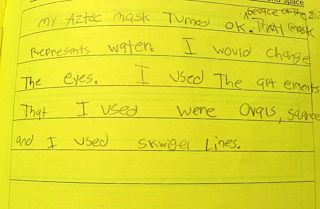 and space
peace of the
my Aztec mask Turned OK. That mask
Represents water. I would change
The eyes. I used The art elements
That I used were Ovals, square
and I used skwigel Lines.